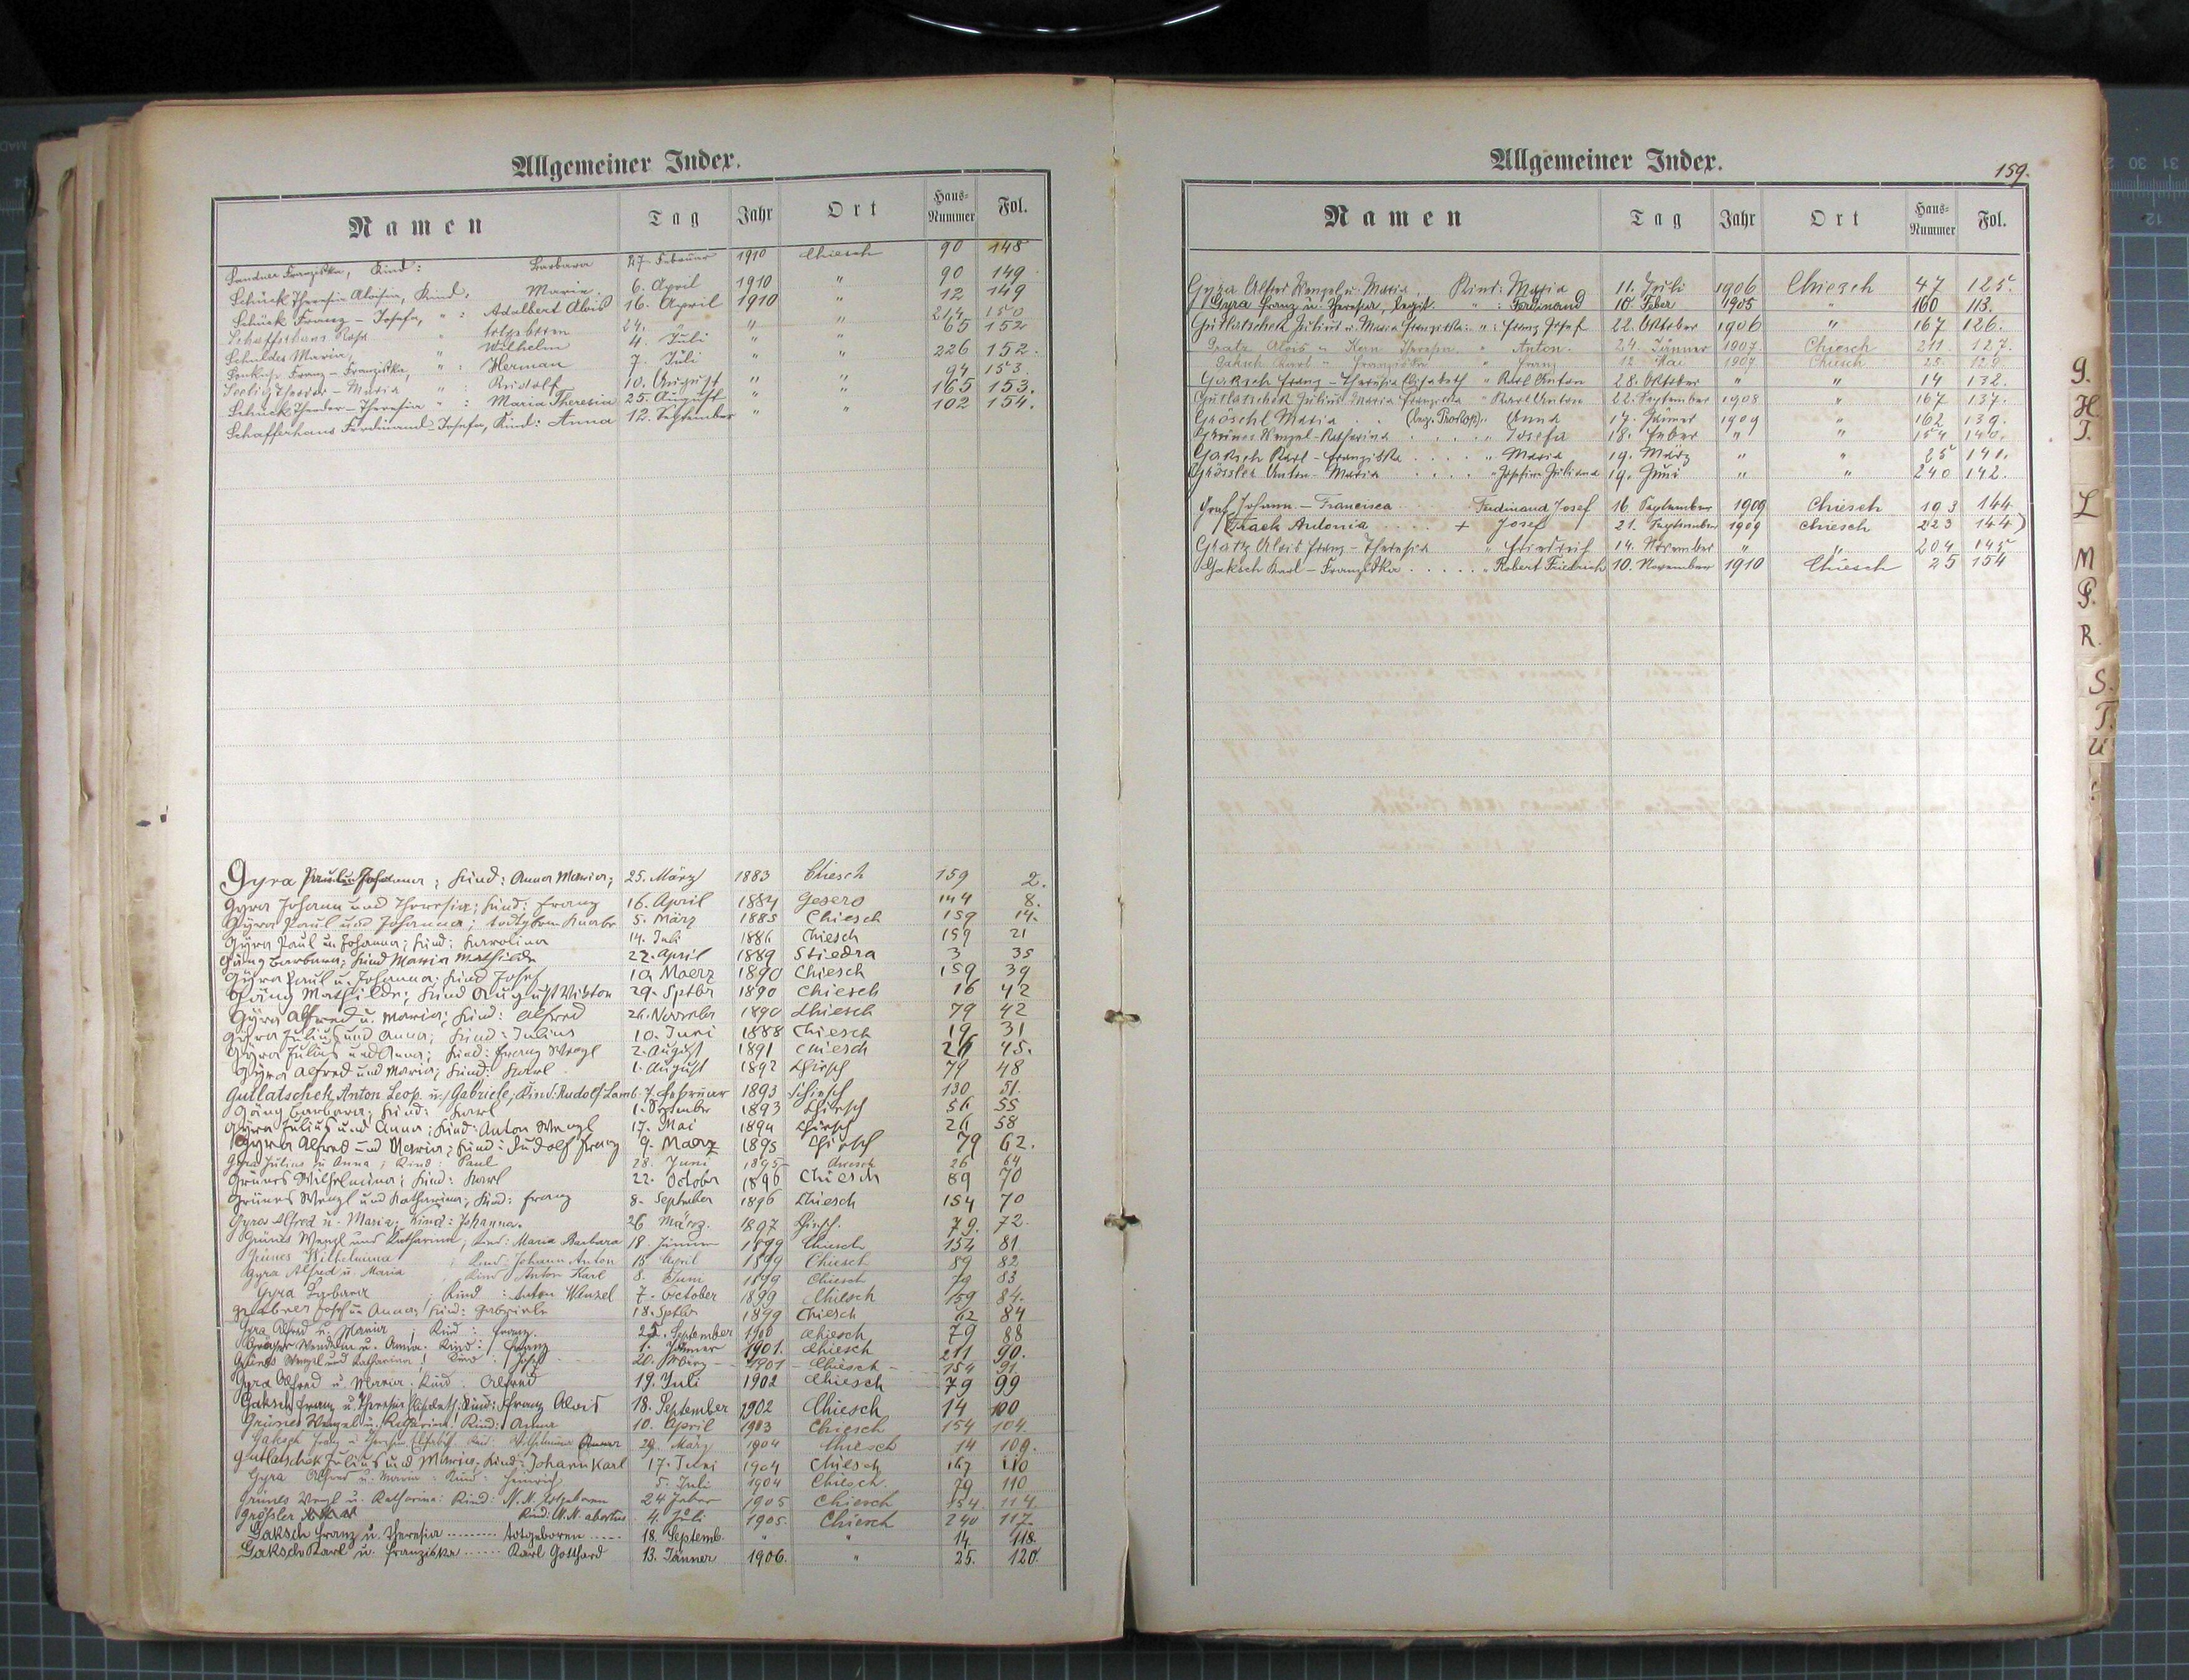 Allgemeiner Index.
Namen Tag Jahr Ort Haus-Nummer Fol.
Franziska, Kind: Barbara 27. Februar 1910 Chiesch 90 148
Schück Theresia Aloisia, Kind: Maria. 6. April 1910 " 90 149
Schück Franz - Josefa, " : Adalbert Alois 16. April 1910 " 12 149
Rosa " totgeboren 24. " " " 214 150
Schulder Maria, " Wilhelm 4. Juli " " 65 152
Franz - Franziska, " : Herman 7. Juli " " 226 152.
Maria " : Rudolf 10. August " " 94 153.
Schück Theodor - Theresia " : Maria Theresia 25. August " " 165 153.
Schafferhans Ferdinand - Josefa, Kind: Anna 12. September " " 102 154.
Gyra Paul u. Johanna; Kind: Anna Maria; 25. März 1883 Chiesch 159 2.
Gyra Johann und Theresia; Kind: Franz 16. April 1884 Gesero 144 8.
Gyra Paul und Johanna; todtgeborn Knabe 5. März 1885 Chiesch 159 14.
Gyra Paul u. Johanna; Kind: Karolina 14. Juli 1886 Chiesch 159 21
Gäng Barbara; Kind Maria Mathilde 22. April 1889 Stiedra 3 35
Gyra Paul u. Johanna; Kind Josef 10 Maerz 1890 Chiesch 159 39
Gäng Mathilde; Kind August Viktor 29. Sptbr 1890 Chiesch 16 42
Gyra Alfred u. Maria; Kind: Alfred 26. Novembr 1890 Chiesch 79 42
Gyra Julius und Anna; Kind: Julius 10. Juni 1888 Chiesch 19 31
Gyra Julius und Anna; Kind: Franz Wenzl 2. August 1891 Chiesch 26 45.
Gyra Alfred und Maria; Kind: Karl 1. August 1892 Chiesch 79 48
Gutlatschek Anton Leop. u. Gabriele, Kind: Rudolf Lamb. 7. Februar 1893 Chiesch 130 51.
Gäng Barbara; Kind: Karl 1. September 1893 Chiesch 56 55
Gyra Julius und Anna; Kind: Anton Wenzl 17. Mai 1894 Chiesch 26 58
Gyra Alfred und Maria; Kind: Rudolf Franz 9. Maerz 1895 Chiesch 79 62.
Gyra Julius u Anna; Kind: Paul 28. Juni 1895 Chiesch 26 64
Grünes Wilhelmina; Kind: Karl 22. October 1896 Chiesch 89 70
Grünes Wenzl und Katharina; Kind: Franz 8. September 1896 Chiesch 154 70
Gyra Alfred u. Maria; Kind: Johanna. 26 März. 1897 Chiesch. 79. 72.
Grünes Wenzl und Katharina; Kind: Maria Barbara 18. Jänner 1899 Chiesch 154 81
Grünes Wilhelmina ; Kind: Johann Anton 15 April 1899 Chiesch 89 82
Gyra Alfred u. Maria ; Kind Anton Karl 8. Juni 1899 Chiesch 79 83
Gyra Barbara ; Kind : Anton Wenzel 7. October 1899 Chiesch 159 84.
Josef u. Anna; Kind: Gabriele 18. Septbr 1899 Chiesch 62 84
Gyra Alfred u. Maria, Kind: Franz. 25. September 1900 Chiesch 79 88
Wendelin u. Anna. Kind: Franz 1. Jänner 1901. Chiesch 211 90.
Grünes Wenzl und Katharina; Kind: Josef 20. März 1901 Chiesch 154 91
Gyra Alfred u. Maria. Kind. Alfred 19. Juli 1902 Chiesch 79 99
Gaksch Franz u. Theresia Elisabeth. Kind: Franz Alois 18. September 1902 Chiesch 14 100
Grünes Wenzel u. Katharina. Kind: Anna 10. April 1903 Chiesch 154 104.
Gaksch Franz u. Theresia Elisabeth. Kind: Wilhelmine Anna 29. März 1904 Chiesch 14 109.
Gutlatschek Julius und Maria, Kind: Johann Karl 17. Juni 1904 Chiesch 167 110
Gyra Alfred u. Maria: Kind: Heinrich 5. Juli 1904 Chiesch. 79 110
Grünes Wenzl u. Katharina: Kind: N. N. totgeboren 24 Feber 1905 Chiesch 154. 114.
Größler Kind: N. N. abortus 4. Juli 1905. Chiesch 240 117.
Gaksch Franz u. Theresia totgeboren 18. Septemb. " " 14 118.
Gaksch Karl u. Franziska Karl Gotthard 13. Jänner 1906. " 25. 120.
Allgemeiner Index. 159.
Namen Tag Jahr Ort Haus-Nummer Fol.
Gyra Alfred Wenzel u. Maria. Kind: Maria 11. Juli 1906 Chiesch 47 125.
Gyra Franz u. Theresia, legit. " : Ferdinand 10. Feber 1905 " 160 113.
Gutlatschek Julius u. Maria Franziska " : Franz Josef 22. Oktober 1906 " 167 126.
Gratz Alois - Kern Theresia. " Anton. 24. Jänner 1907. Chiesch 211. 127.
Gaksch Karl " Franziska " Franz 12. Mai 1907. Chiesch 25. 128.
Gaksch Franz - Theresia Elisabeth " Karl Anton 28. Oktober " " 14 132.
Gutlatschek Julius Maria Franziska " Karl Anton 22. September 1908 " 167 137.
Gröschl Maria (leg. Prokop) " Anna 17. Jänner 1909 " 162 139.
Grünes Wenzel - Katharina " Josefa 18. Feber " " 154 140.
Gaksch Karl - Franziska " Maria 19. März " " 25 141.
Grössler Anton - Maria " Josefine Juliana 19. Juni " " 240 142.
Graf Johann. - Francisca Ferdinand Josef 16. September 1909 Chiesch 193 144
(Track Antonia + Josef 21. September 1909 Chiesch 223 144)
Gratz Alois Franz - Theresia " Friedrich 14. November " " 204 145
Gaksch Karl - Franziska " Robert Friedrich 10. November 1910 Chiesch 25 154
G.
H
J.
L
M
P.
R.
S.
T.
U